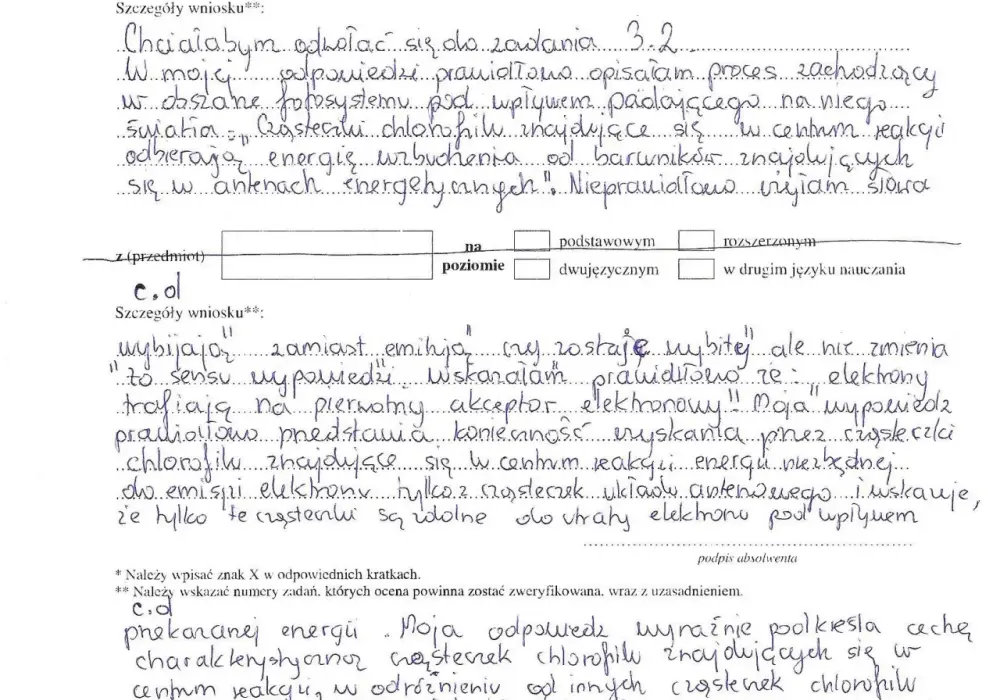 Szczegóły wniosku**:
Chciałabym odwołać się do zadania 3.2.
W mojej odpowiedzi prawidłowo opisałam proces zachodzący
w obszarze fotosystemu pod wpływem padającego na niego
światła: „Cząsteczki chlorofilu znajdujące się w centrum reakcji
odbierają energię wzbudzenia od barwników znajdujących
się w antenach energetycznych". Nieprawidłowo użyłam słowa
z (przedmiot)
na
poziomie
podstawowym
rozszerzonym
dwujęzycznym
w drugim języku nauczania
c.d
Szczegóły wniosku**:
"wybijają" zamiast "emitują" czy zostaje wybitej" ale nie zmienia
to sensu wypowiedzi. Wskazałam prawidłowo że: "elektrony
trafiają na pierwotny akceptor elektronowy". Moja wypowiedz
prawidłowo przedstawia konieczność uzyskania przez cząsteczki
chlorofilu znajdujące się w centrum reakcji energii niezbędnej
do emisji elektronu tylko z cząsteczek układu antenowego i wskazuje,
że tylko te cząsteczki są zdolne do utraty elektronu pod wpływem
podpis absolwenta
* Należy wpisać znak X w odpowiednich kratkach.
** Należy wskazać numery zadań, których ocena powinna zostać zweryfikowana, wraz z uzasadnieniem.
c.d
przekazanej energii. Moja odpowiedz wyraźnie podkreśla cechę
charakterystyczną cząsteczek chlorofilu znajdujących się w
centrum reakcji, w odróżnieniu od innych cząsteczek chlorofilu